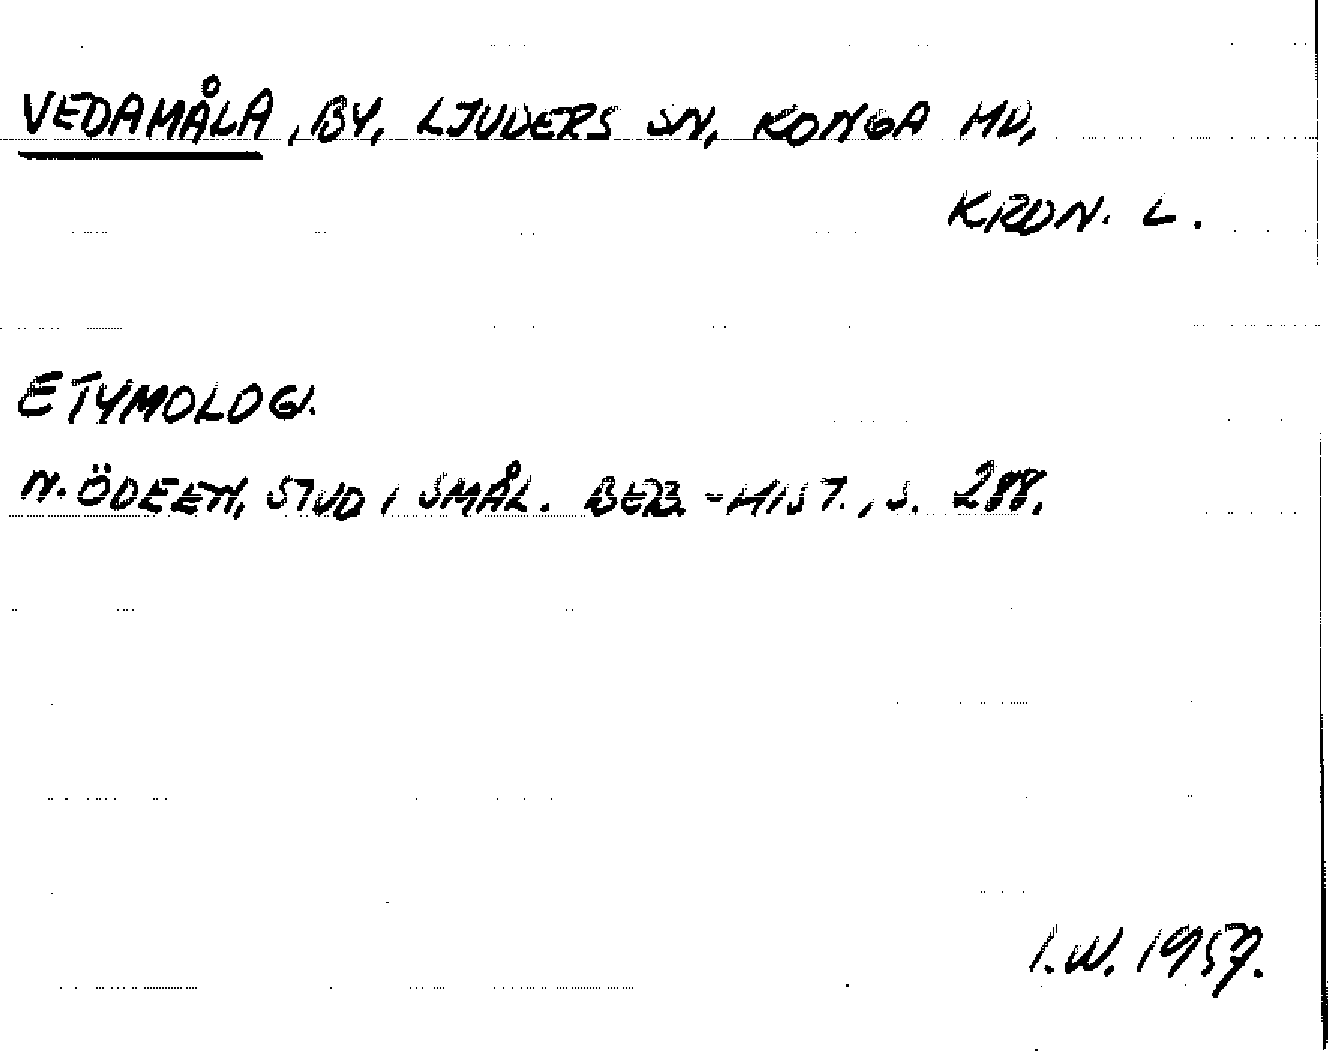 VEDAMÅLA, BY, LJUDERS SN, KONGA HD,
KRON. L.
ETYMOLOGI.
N. ÖDEEN, STUD I SMÅL. BEB.-HIST., S. 288.
I.W. 1957.